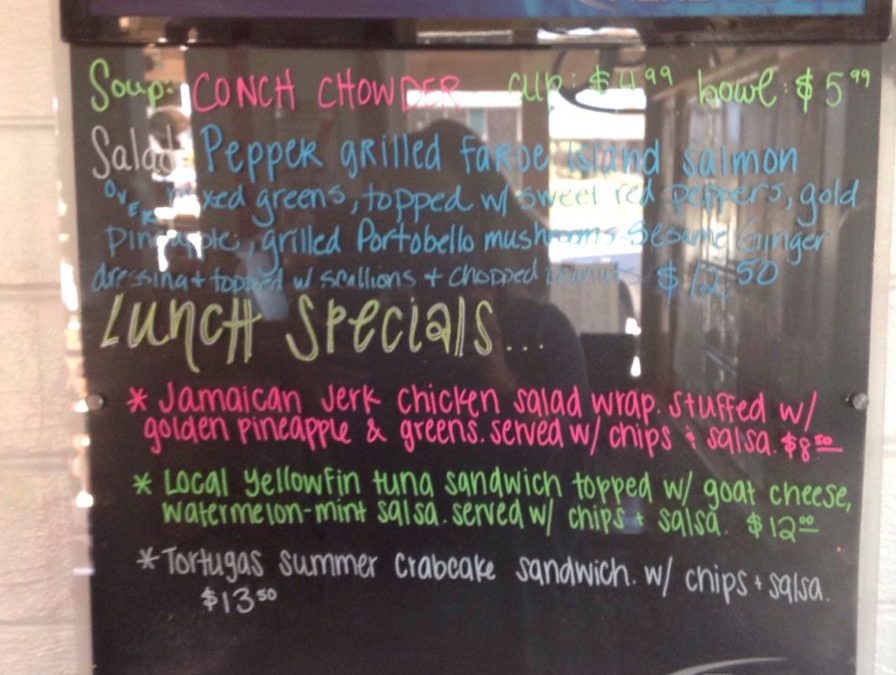 Soup: CONCH CHOWDER cup: $4.99 bowl: $5.99
Salad: Pepper grilled Faroe Island salmon
OVER mixed greens, topped w/ sweet red peppers, gold
pineapple, grilled Portobello mushrooms. Sesame Ginger
dressing + topped w/ scallions + chopped peanuts $12.50
Lunch Specials...
* Jamaican Jerk chicken salad wrap. stuffed w/
golden pineapple & greens. served w/ chips + salsa. $8.50
* Local yellowfin tuna sandwich topped w/ goat cheese,
watermelon-mint salsa. served w/ chips + salsa. $12.00
* Tortugas summer crabcake sandwich. w/ chips + salsa.
$13.50